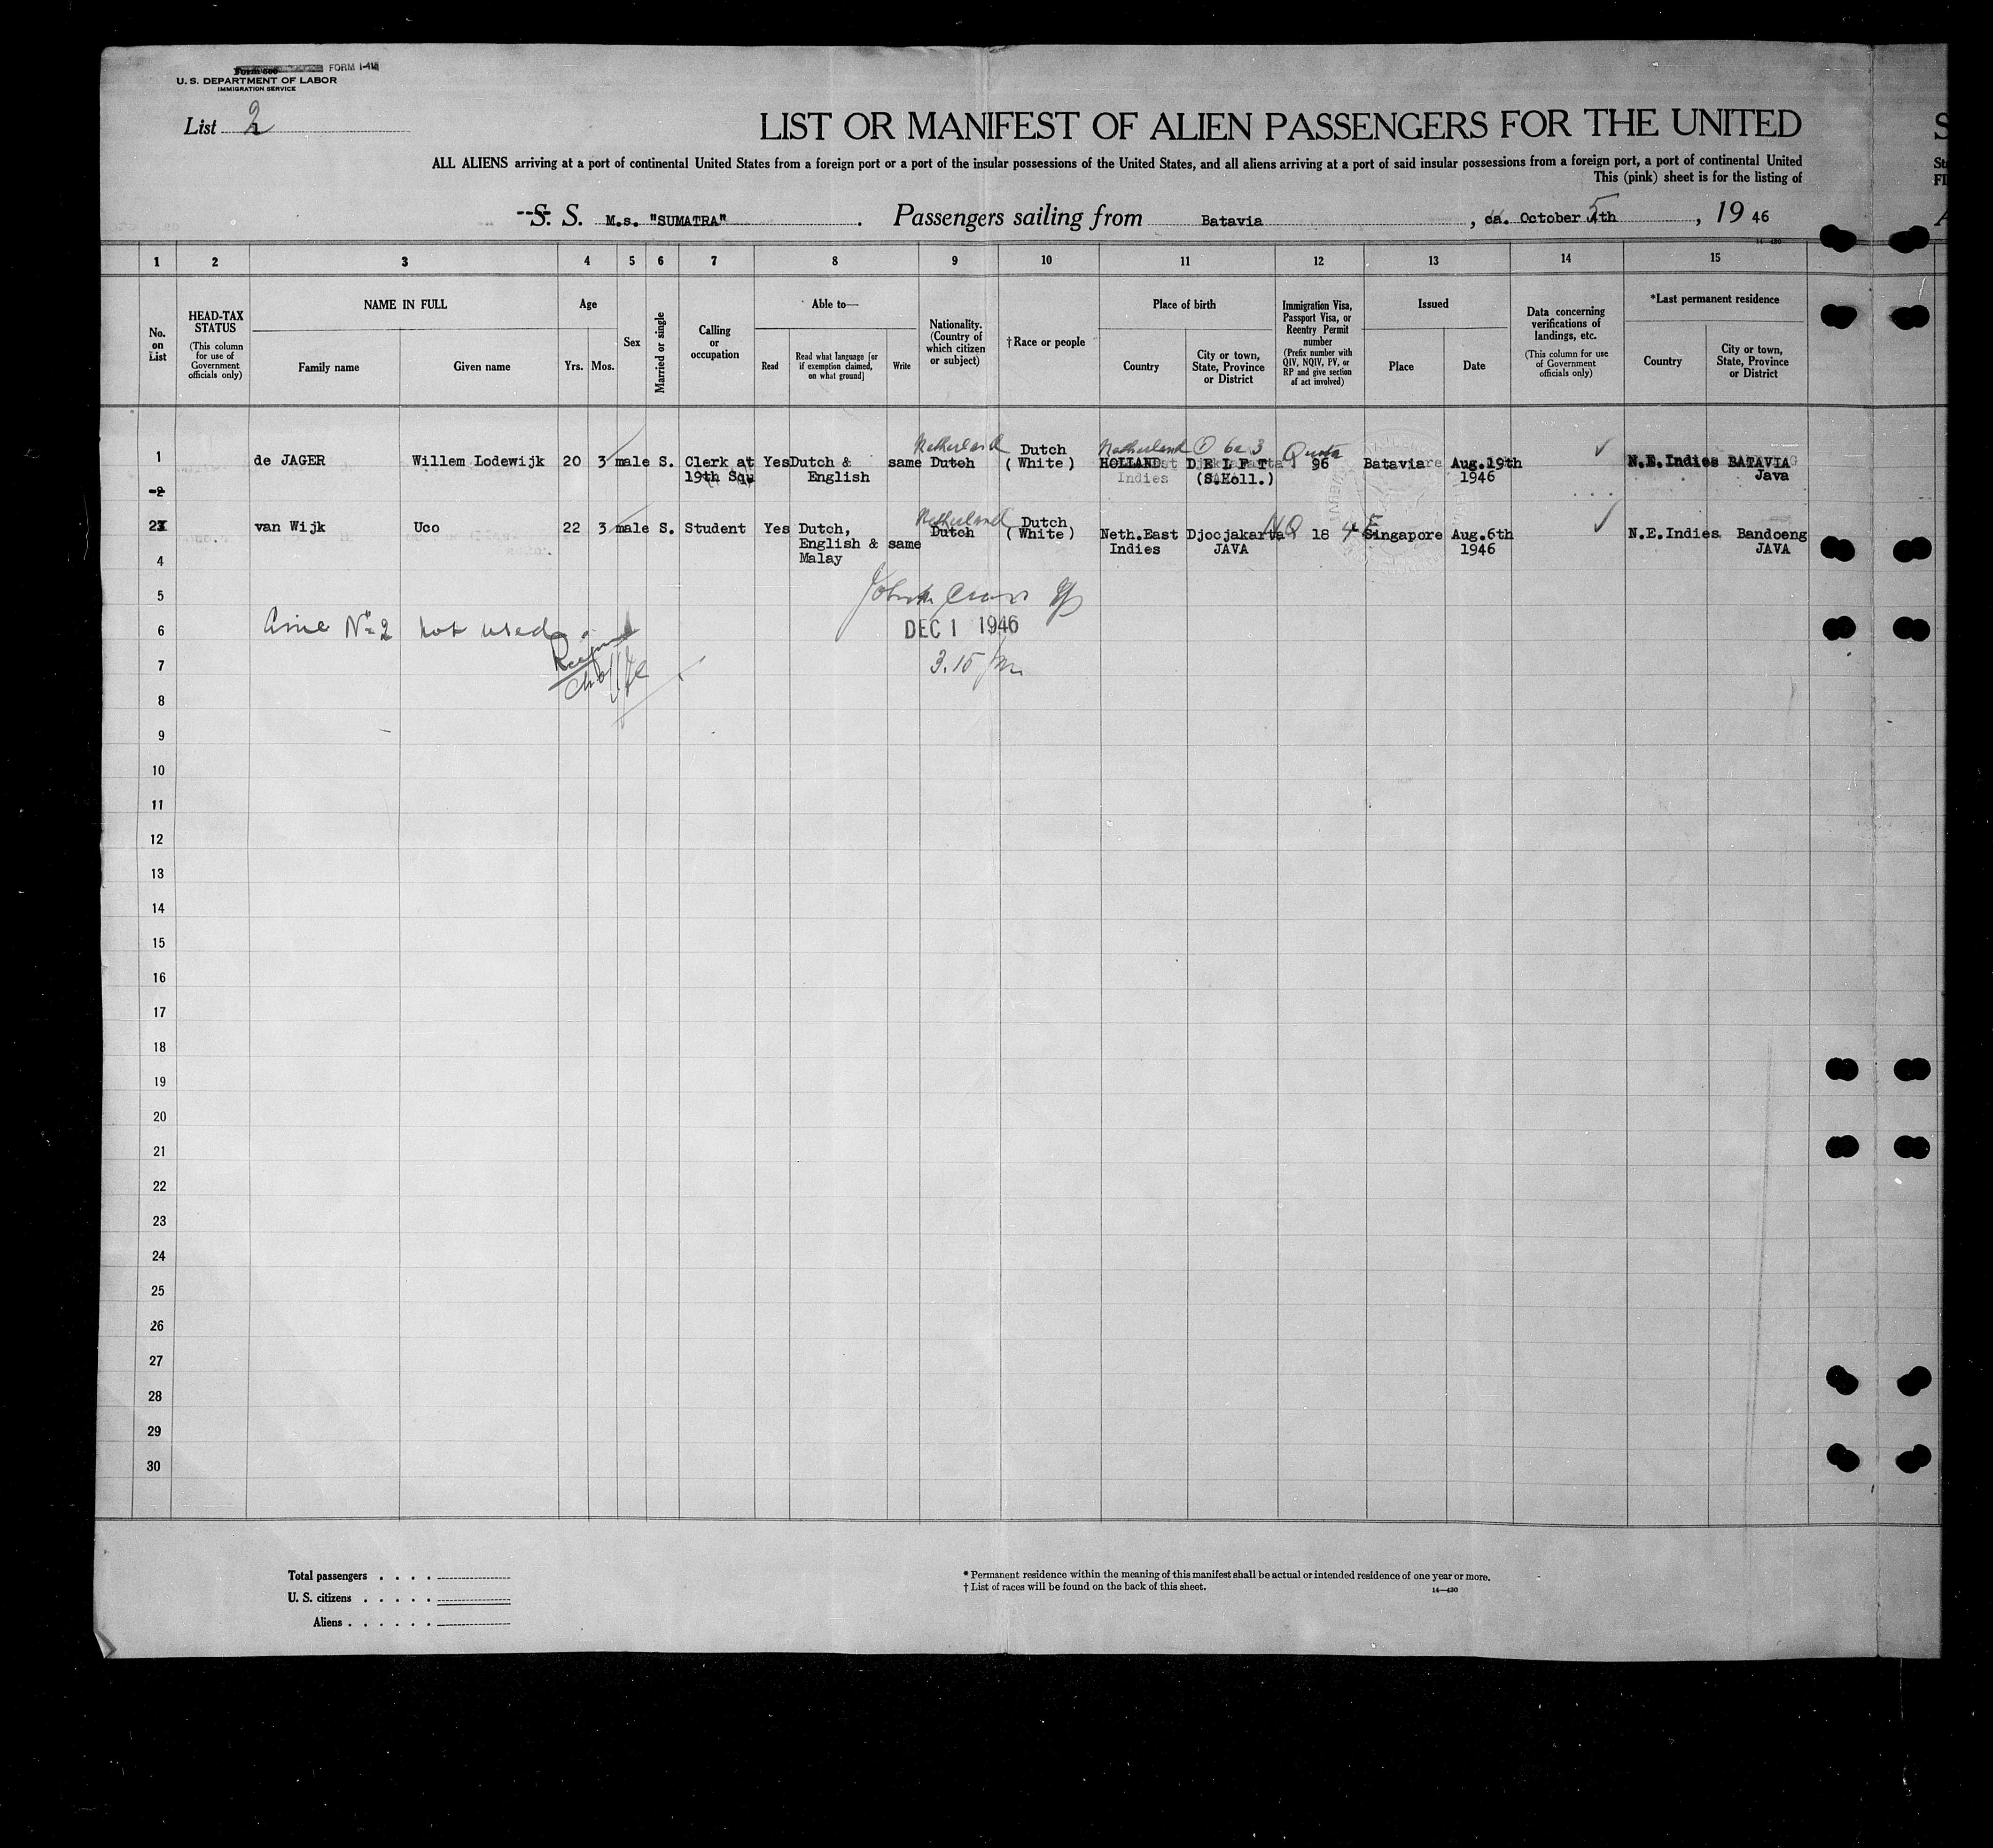 FORM I-415
U. S. DEPARTMENT OF LABOR
IMMIGRATION SERVICE
List 2
LIST OR MANIFEST OF ALIEN PASSENGERS FOR THE UNITED
ALL ALIENS arriving at a port of continental United States from a foreign port or a port of the insular possessions of the United States, and all aliens arriving at a port of said insular possessions from a foreign port, a port of continental United
This (pink) sheet is for the listing of
S. S. M.s. "SUMATRA" . Passengers sailing from Batavia , ca. October 5th , 19 46
14-430
1 2 3 4 5 6 7 8 9 10 11 12 13 14 15
No. on List
HEAD-TAX STATUS
(This column for use of Government officials only)
NAME IN FULL
Family name Given name
Age
Yrs. Mos.
Sex
Married or single
Calling or occupation
Able to—
Read
Read what language [or if exemption claimed, on what ground]
Write
Nationality. (Country of which citizen or subject)
†Race or people
Place of birth
Country
City or town, State, Province or District
Immigration Visa, Passport Visa, or Reentry Permit number
(Prefix number with QIV, NQIV, PV, or RP and give section of act involved)
Issued
Place Date
Data concerning verifications of landings, etc.
(This column for use of Government officials only)
*Last permanent residence
Country
City or town, State, Province or District
Netherland Dutch Netherland Quota
1 de JAGER Willem Lodewijk 20 3 male S. Clerk at Yes Dutch & same Dutch (White) HOLLAND D E L F T 96 Batavia Aug.19th N.E.Indies BATAVIA
19th Squ English Indies (S.Holl.) 1946 Java
2
Netherland Dutch
2 van Wijk Uco 22 3 male S. Student Yes Dutch, Dutch (White) Neth.East Djocjakarta NQ 18 Singapore Aug.6th N.E.Indies Bandoeng
English & same Indies JAVA 1946 JAVA
4 Malay
5
6 Line No 2 not used DEC 1 1946
7 3.15 pm
8
9
10
11
12
13
14
15
16
17
18
19
20
21
22
23
24
25
26
27
28
29
30
Total passengers . . . .
U. S. citizens . . . . .
Aliens . . . . . .
* Permanent residence within the meaning of this manifest shall be actual or intended residence of one year or more.
† List of races will be found on the back of this sheet.
14—430